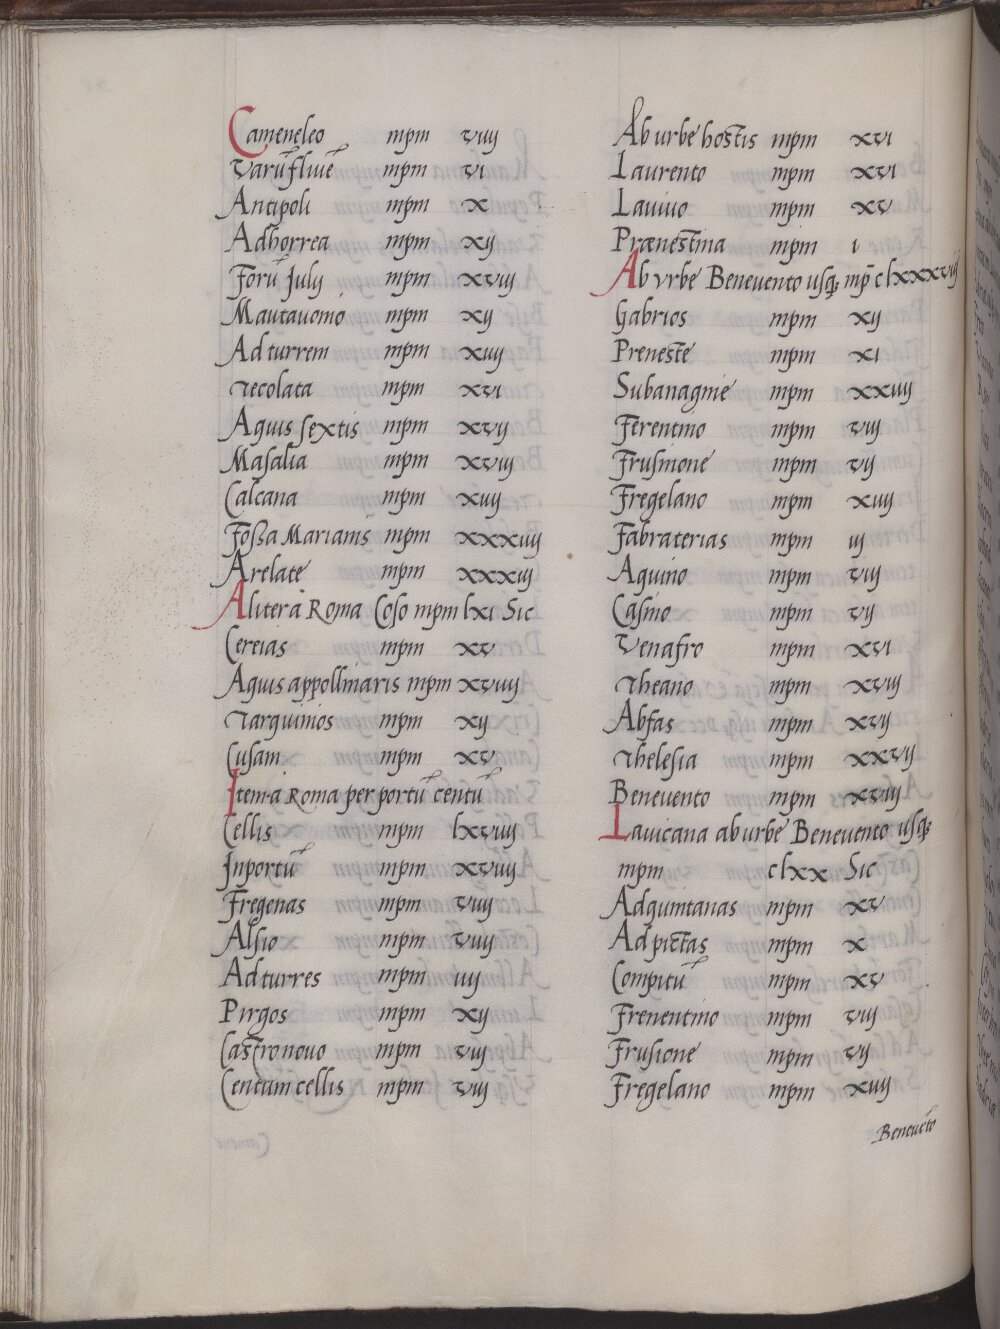 Cameneleo mpm viiij
Varū flūuē mpm vi
Antipoli mpm x
Adhorrea mpm xij
Forū Julij mpm xviij
Mautauomo mpm xij
Ad turrem mpm xiiij
Tecolata mpm xvi
Aquis sextis mpm xvij
Masalia mpm xviij
Calcana mpm xiiij
Fossa Marianis mpm xxxiiij
Arelate mpm xxxiij
Aliter a Roma Coso mpm lxi Sic
Cereias mpm xv
Aquis appollinaris mpm xviiij
Tarquinios mpm xij
Cusam mpm xv
Item a Roma per portū centū
Cellis mpm lxviiij
Inportū mpm xviiij
Fregenas mpm viiij
Alsio mpm viiij
Ad turres mpm iiij
Pirgos mpm xij
Castronouo mpm viij
Centum cellis mpm viij
Ab urbe hostis mpm xvi
Laurento mpm xvi
Lauiuo mpm xv
Prænestina mpm i
Ab vrbe Beneuento usq; mp̄ clxxxviij
Gabrios mpm xij
Preneste mpm xi
Subanagnie mpm xxiiij
Ferentino mpm viij
Frusinone mpm vij
Fregelano mpm xiiij
Fabraterias mpm iij
Aquino mpm viij
Casino mpm vij
Venafro mpm xvi
Theano mpm xviij
Abfas mpm xvij
Thelesia mpm xxvij
Beneuento mpm xviij
Lauicana ab urbe Beneuento usq;
mpm clxx Sic
Adquintanas mpm xv
Ad pictas mpm x
Compitū mpm xv
Frenentino mpm viij
Frusione mpm vij
Fregelano mpm xiiij
Beneuēto